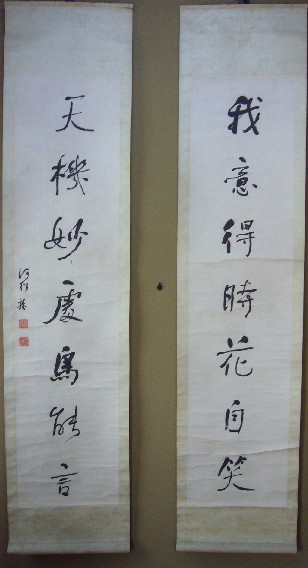 我意得時花自笑
天機妙處鳥能言